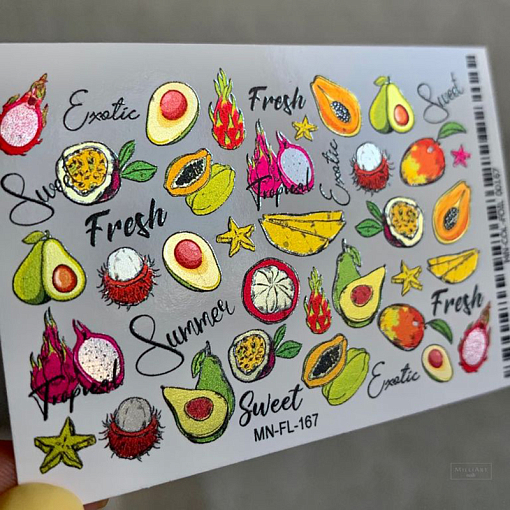 Exotic
Fresh
Sweet
Sweet
Tropical
Exotic
Fresh
Summer
Fresh
Tropical
Sweet
Exotic
MN-FL-167
MILLIART